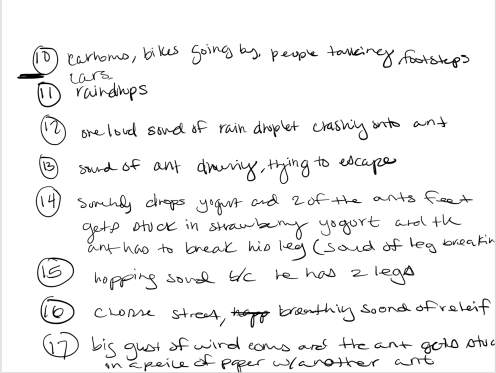 10 carhorns, bikes going by, people talking, footsteps
cars
11 raindrops
12 one loud sound of rain droplet crashing onto ant
13 sound of ant drowning, trying to escape
14 somebody drops yogurt and 2 of the ants feet
gets stuck in strawberry yogurt and the
ant has to break his leg (sound of leg breakin
15 hopping sound b/c he has 2 legs
16 choose street, breathing sound of releif
17 big gust of wind coms and the ant gets stuc
in a peice of paper w/another ant